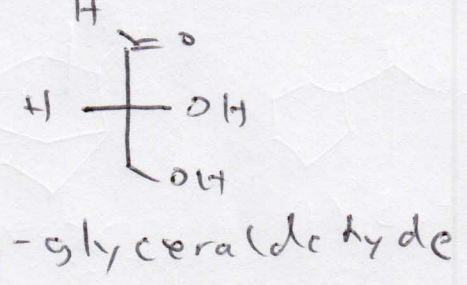 H
O
H OH
OH
-glyceraldehyde